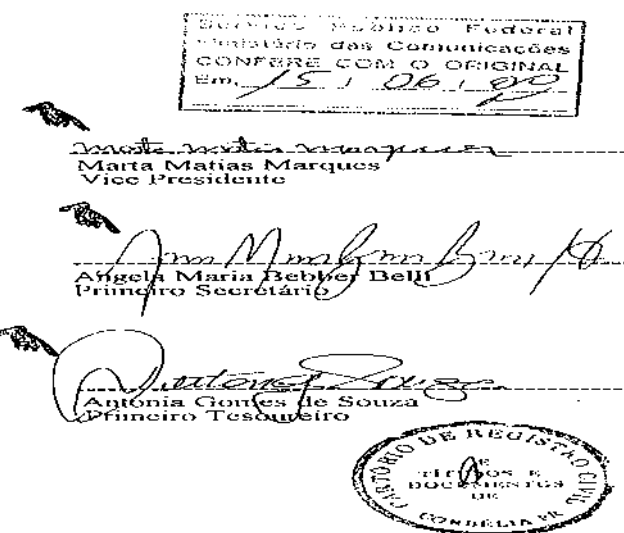 Serviço Público Federal
Ministério das Comunicações
CONFERE COM O ORIGINAL
Em, 15 / 06 / 00
Marta Matias Marques
Marta Matias Marques
Vice Presidente
Angela Maria Bebber Belli
Primeiro Secretário
Antonia Souza
Antonia Gomes de Souza
Primeiro Tesoureiro
CARTÓRIO DE REGISTRO CIVIL
E
TÍTULOS E
DOCUMENTOS
DE
CORBÉLIA PR